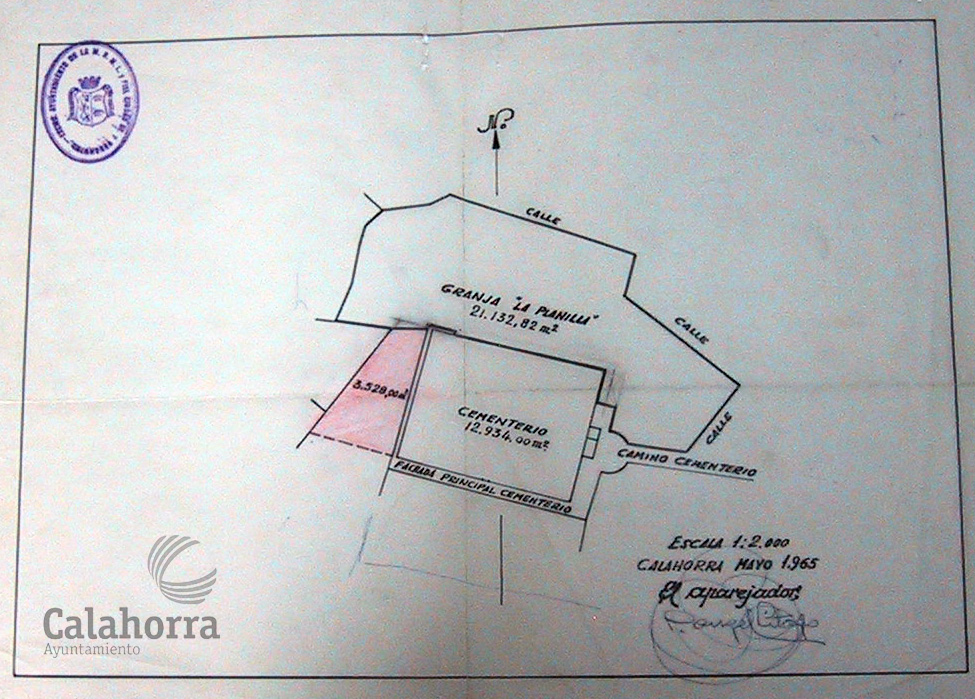 Nº
CALLE
GRANJA "LA PLANILLA"
21.132,82 m²
CALLE
3.528,00 m²
CEMENTERIO
12.934,00 m²
CALLE
CAMINO CEMENTERIO
FACHADA PRINCIPAL CEMENTERIO
ESCALA 1:2.000
CALAHORRA MAYO 1.965
El aparejador
Calahorra
Ayuntamiento